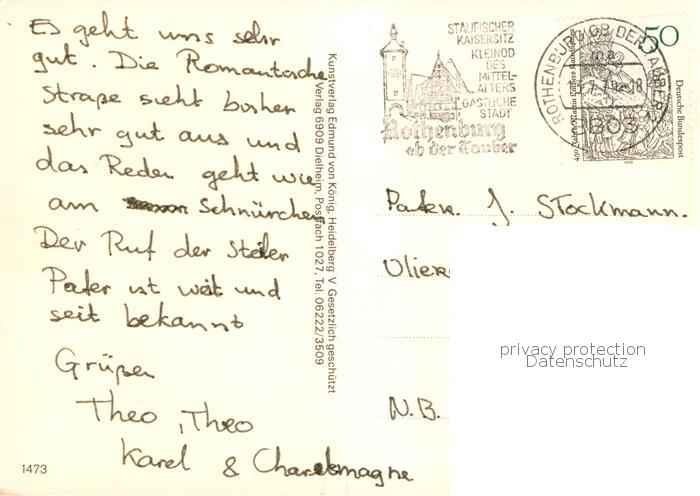 Es geht uns sehr
gut. Die Romantische
Straße sieht bisher
sehr gut aus und
das Reden geht wie
am Schnürchen
Der Ruf der
Pater ist weit und
seit bekannt
Grüßen
Theo, Theo
Karel & Charelsmagne
1473
Kunstverlag Edmund von König, Heidelberg V Gesetzlich geschützt
Verlag 6909 Dielheim, Postfach 1027, Tel. 06222/3509
STAUFISCHER
KAISERSITZ
KLEINOD
DES
MITTEL-
ALTERS
GASTLICHE
STADT
Rothenburg
ob der Tauber
ROTHENBURG OB DER TAUBER
50
Deutsche Bundespost
Pater. J. Stockmann.
N.B.
privacy protection
Datenschutz